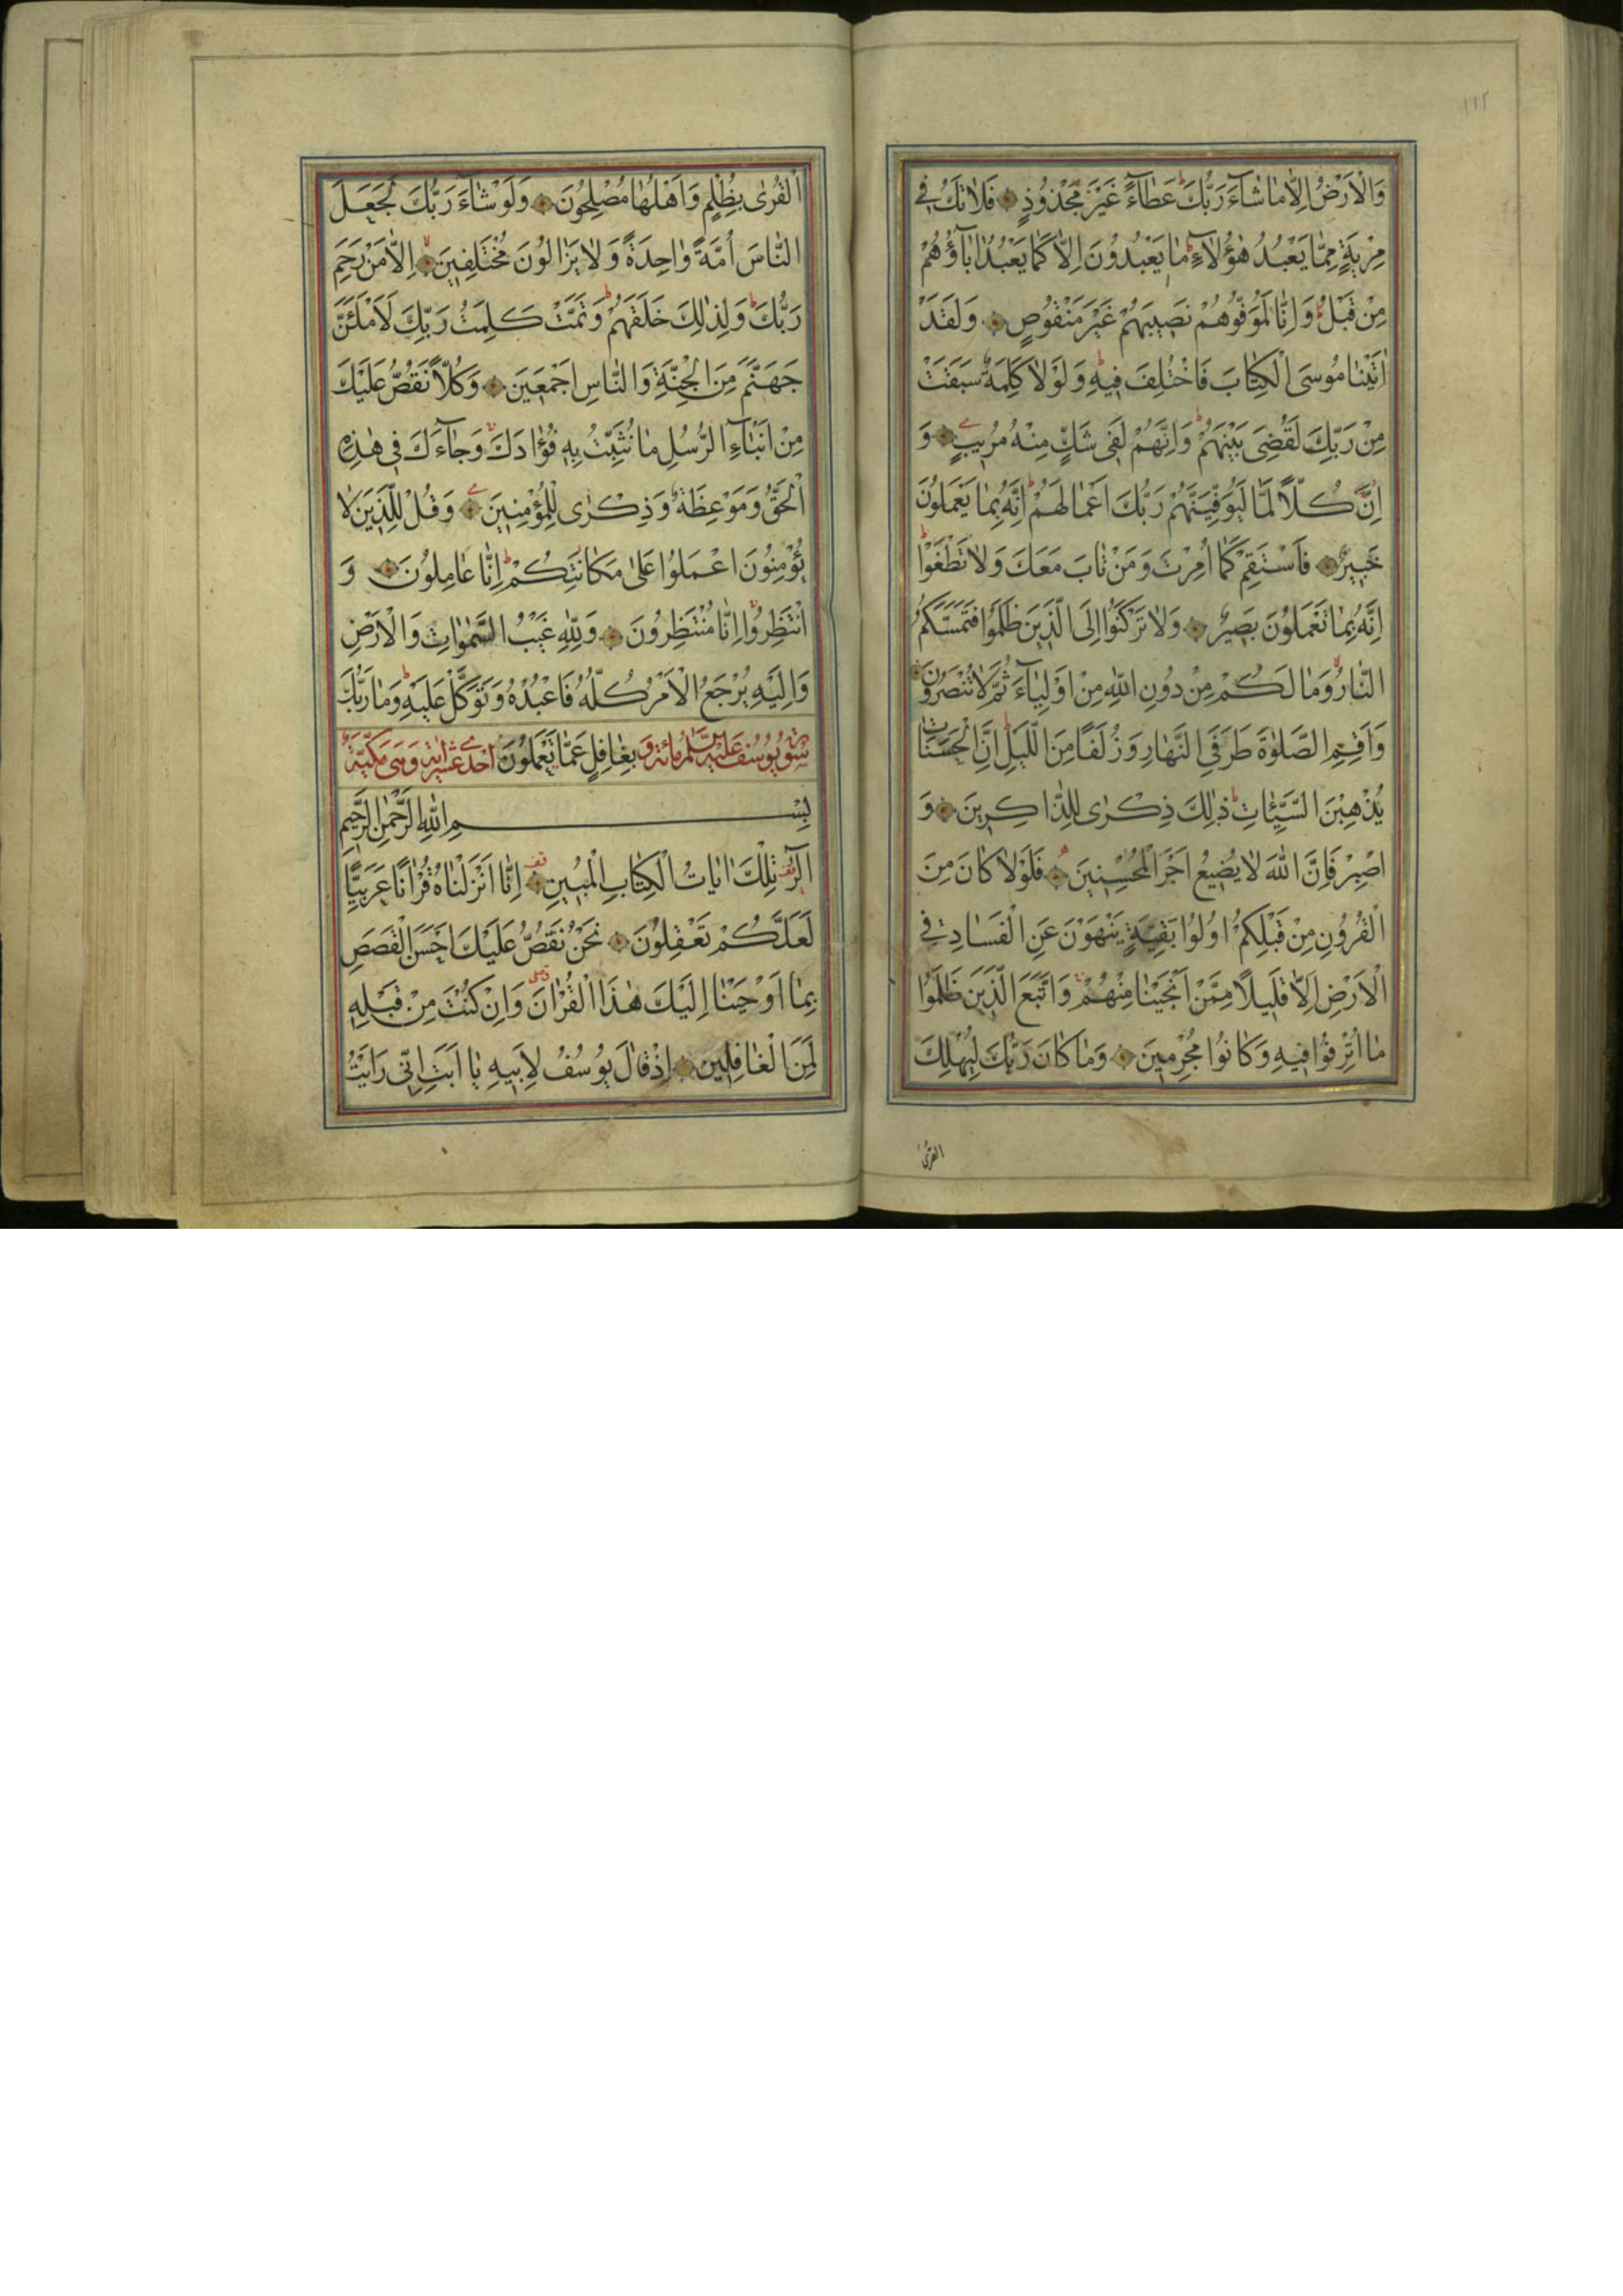 ١١٢
وَالْاَرْضُ اِلَّا مَا شَآءَ رَبُّكَ عَطَآءً غَيْرَ مَجْذُوذٍ فَلَا تَكُ فِى
مِرْيَةٍ مِمَّا يَعْبُدُ هٰؤُلَآءِ مَا يَعْبُدُونَ اِلَّا كَمَا يَعْبُدُ اٰبَآؤُهُمْ
مِنْ قَبْلُ وَاِنَّا لَمُوَفُّوهُمْ نَصِيبَهُمْ غَيْرَ مَنْقُوصٍ وَلَقَدْ
اٰتَيْنَا مُوسَى الْكِتَابَ فَاخْتُلِفَ فِيهِ وَلَوْلَا كَلِمَةٌ سَبَقَتْ
مِنْ رَبِّكَ لَقُضِىَ بَيْنَهُمْ وَاِنَّهُمْ لَفِى شَكٍّ مِنْهُ مُرِيبٍ وَ
اِنَّ كُلًّا لَمَّا لَيُوَفِّيَنَّهُمْ رَبُّكَ اَعْمَالَهُمْ اِنَّهُ بِمَا يَعْمَلُونَ
خَبِيرٌ فَاسْتَقِمْ كَمَا اُمِرْتَ وَمَنْ تَابَ مَعَكَ وَلَا تَطْغَوْا
اِنَّهُ بِمَا تَعْمَلُونَ بَصِيرٌ وَلَا تَرْكَنُوا اِلَى الَّذِينَ ظَلَمُوا فَتَمَسَّكُمُ
النَّارُ وَمَا لَكُمْ مِنْ دُونِ اللّٰهِ مِنْ اَوْلِيَآءَ ثُمَّ لَا تُنْصَرُونَ
وَاَقِمِ الصَّلٰوةَ طَرَفَىِ النَّهَارِ وَزُلَفًا مِنَ اللَّيْلِ اِنَّ الْحَسَنَاتِ
يُذْهِبْنَ السَّيِّئَاتِ ذٰلِكَ ذِكْرٰى لِلذَّاكِرِينَ وَ
اصْبِرْ فَاِنَّ اللّٰهَ لَا يُضِيعُ اَجْرَ الْمُحْسِنِينَ فَلَوْلَا كَانَ مِنَ
الْقُرُونِ مِنْ قَبْلِكُمْ اُولُوا بَقِيَّةٍ يَنْهَوْنَ عَنِ الْفَسَادِ فِى
الْاَرْضِ اِلَّا قَلِيلًا مِمَّنْ اَنْجَيْنَا مِنْهُمْ وَاتَّبَعَ الَّذِينَ ظَلَمُوا
مَا اُتْرِفُوا فِيهِ وَكَانُوا مُجْرِمِينَ وَمَا كَانَ رَبُّكَ لِيُهْلِكَ
القرى
الْقُرٰى بِظُلْمٍ وَاَهْلُهَا مُصْلِحُونَ وَلَوْ شَآءَ رَبُّكَ لَجَعَلَ
النَّاسَ اُمَّةً وَاحِدَةً وَلَا يَزَالُونَ مُخْتَلِفِينَ اِلَّا مَنْ رَحِمَ
رَبُّكَ وَلِذٰلِكَ خَلَقَهُمْ وَتَمَّتْ كَلِمَتُ رَبِّكَ لَاَمْلَئَنَّ
جَهَنَّمَ مِنَ الْجِنَّةِ وَالنَّاسِ اَجْمَعِينَ وَكُلًّا نَقُصُّ عَلَيْكَ
مِنْ اَنْبَآءِ الرُّسُلِ مَا نُثَبِّتُ بِهِ فُؤَادَكَ وَجَآءَكَ فِى هٰذِهِ
الْحَقُّ وَمَوْعِظَةٌ وَذِكْرٰى لِلْمُؤْمِنِينَ وَقُلْ لِلَّذِينَ لَا
يُؤْمِنُونَ اعْمَلُوا عَلٰى مَكَانَتِكُمْ اِنَّا عَامِلُونَ وَ
انْتَظِرُوا اِنَّا مُنْتَظِرُونَ وَلِلّٰهِ غَيْبُ السَّمٰوَاتِ وَالْاَرْضِ
وَاِلَيْهِ يُرْجَعُ الْاَمْرُ كُلُّهُ فَاعْبُدْهُ وَتَوَكَّلْ عَلَيْهِ وَمَا رَبُّكَ
سورة يوسف عليه السلام مائة و بِغَافِلٍ عَمَّا تَعْمَلُونَ احدى عشر اية وهى مكية
بِسْمِ اللّٰهِ الرَّحْمٰنِ الرَّحِيمِ
الٓرٰ تِلْكَ اٰيَاتُ الْكِتَابِ الْمُبِينِ اِنَّا اَنْزَلْنَاهُ قُرْاٰنًا عَرَبِيًّا
لَعَلَّكُمْ تَعْقِلُونَ نَحْنُ نَقُصُّ عَلَيْكَ اَحْسَنَ الْقَصَصِ
بِمَا اَوْحَيْنَا اِلَيْكَ هٰذَا الْقُرْاٰنَ وَاِنْ كُنْتَ مِنْ قَبْلِهِ
لَمِنَ الْغَافِلِينَ اِذْ قَالَ يُوسُفُ لِاَبِيهِ يَا اَبَتِ اِنِّى رَاَيْتُ